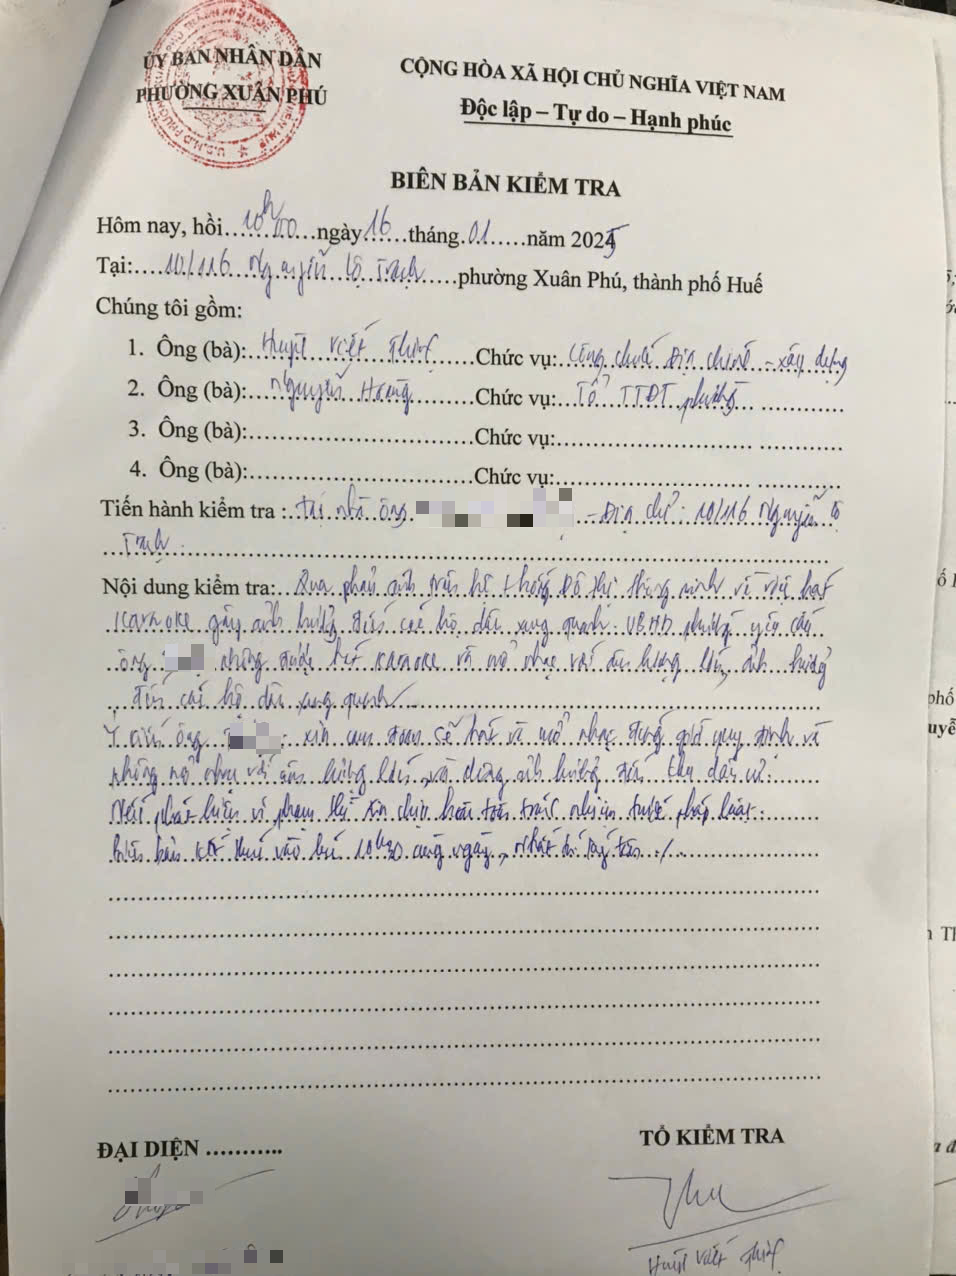 ỦY BAN NHÂN DÂN
PHƯỜNG XUÂN PHÚ
CỘNG HÒA XÃ HỘI CHỦ NGHĨA VIỆT NAM
Độc lập – Tự do – Hạnh phúc
BIÊN BẢN KIỂM TRA
Hôm nay, hồi 10h00 ngày 16 tháng 01 năm 2025
Tại: 10/116 Nguyễn Lộ Trạch phường Xuân Phú, thành phố Huế
Chúng tôi gồm:
1. Ông (bà): Huỳnh Viết Chức vụ: Công chức Địa chính - xây dựng
2. Ông (bà): Nguyễn Hoàng Chức vụ: Tổ TTĐT phường
3. Ông (bà): Chức vụ:
4. Ông (bà): Chức vụ:
Tiến hành kiểm tra : tại nhà ông - Địa chỉ: 10/116 Nguyễn Lộ
Trạch.
Nội dung kiểm tra: Qua phản ánh trên hệ thống Đô thị thông minh về việc hát
karaoke gây ảnh hưởng đến các hộ dân xung quanh. UBND phường yêu cầu
ông không được hát karaoke và mở nhạc với âm lượng lớn, ảnh hưởng
đến các hộ dân xung quanh
Ý kiến ông : xin cam đoan sẽ hát và mở nhạc đúng giờ quy định và
không mở nhạc với âm lượng lớn, và không ảnh hưởng đến khu dân cư.
Nếu phát hiện vi phạm thì xin chịu hoàn toàn trách nhiệm trước pháp luật.
Biên bản kết thúc vào lúc 10h30 cùng ngày, nhất trí ký tên ./.
ĐẠI DIỆN
TỔ KIỂM TRA
Huỳnh Viết